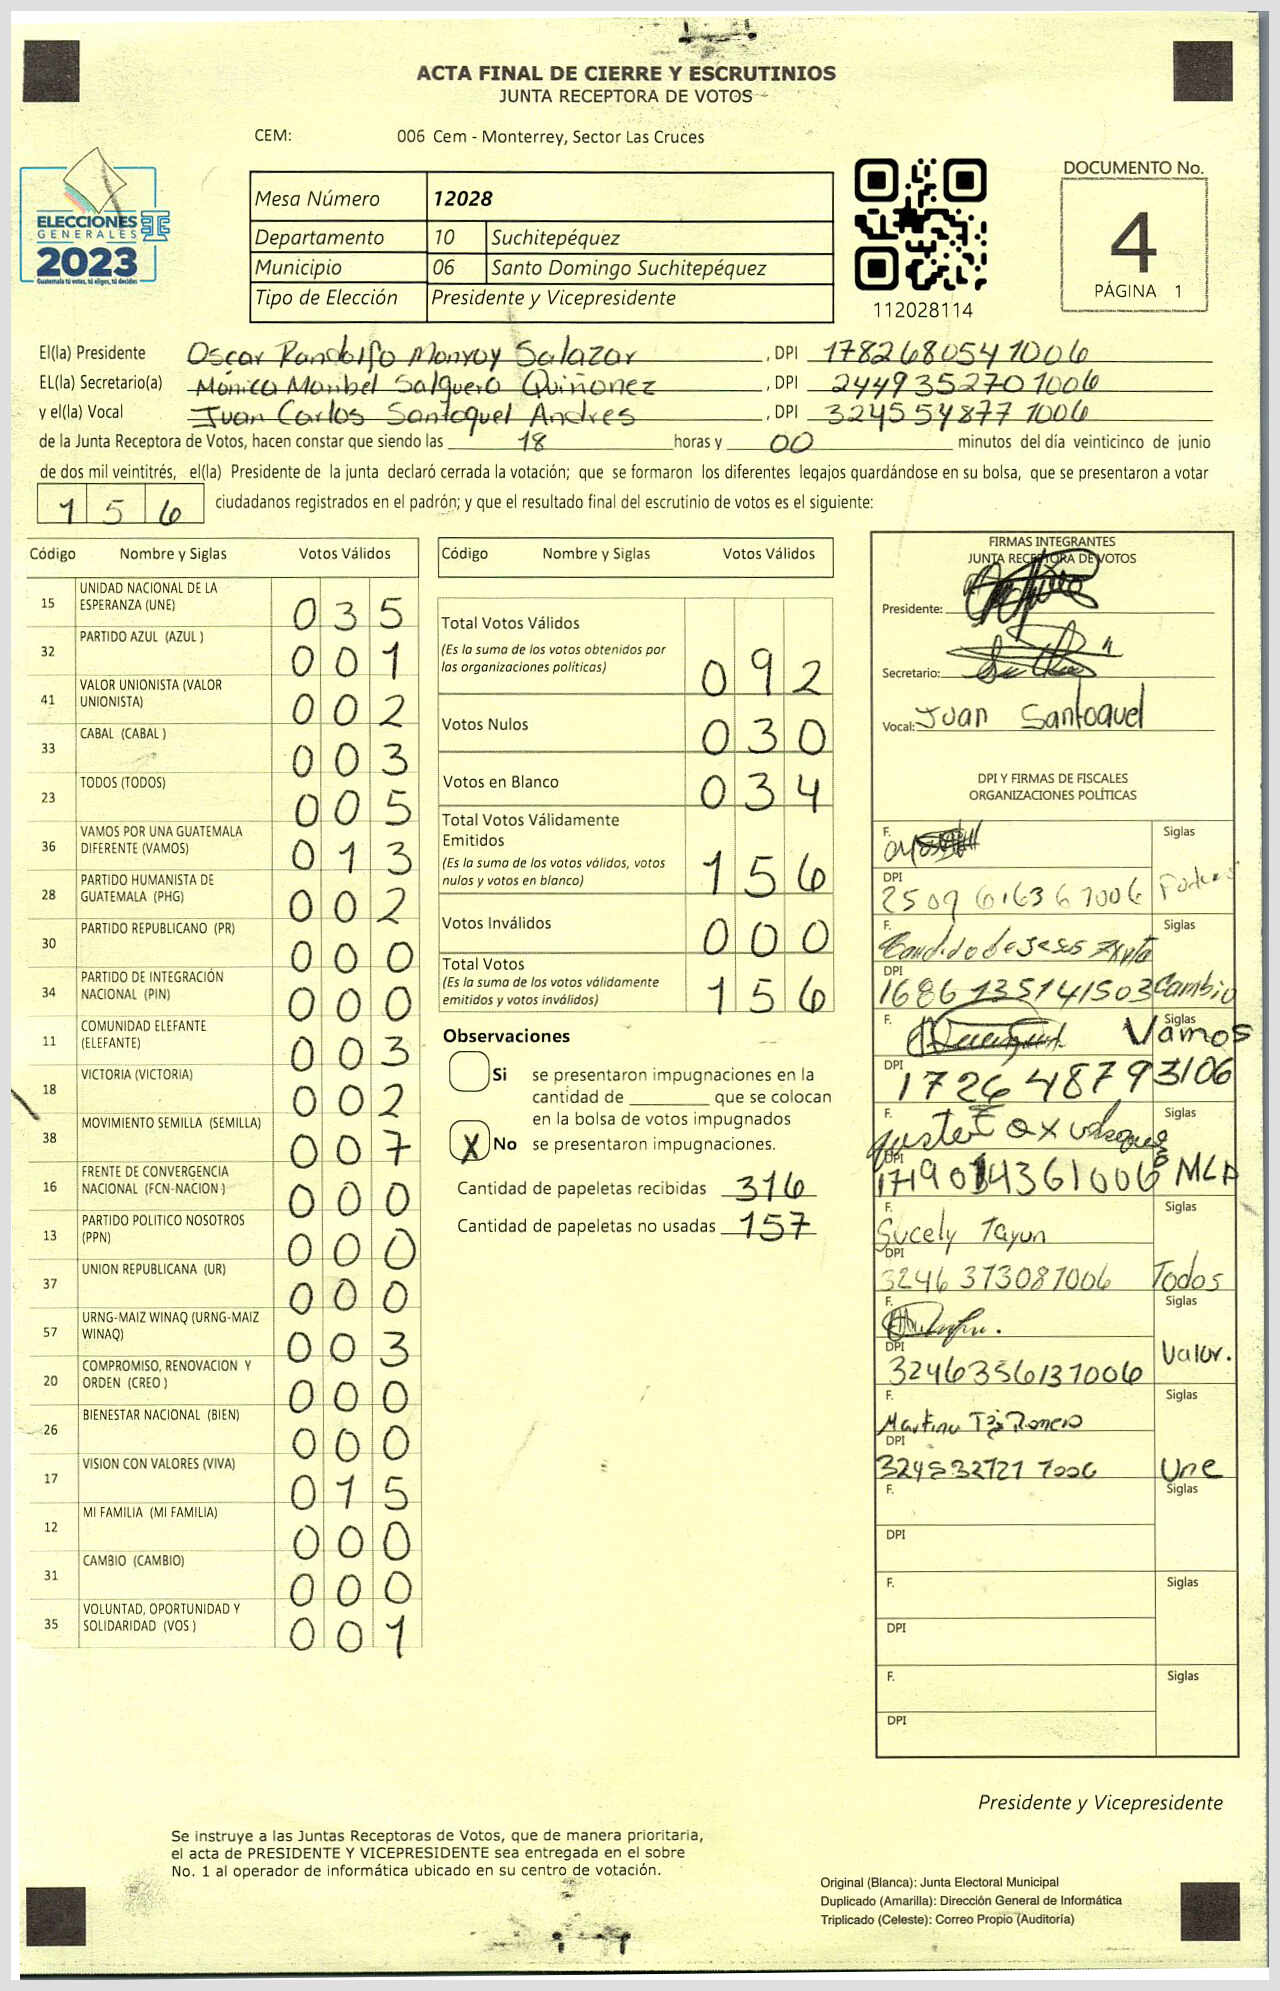 ACTA FINAL DE CIERRE Y ESCRUTINIOS
JUNTA RECEPTORA DE VOTOS
CEM: 006 Cem - Monterrey, Sector Las Cruces
ELECCIONES
GENERALES
2023
Guatemala tú votas, tú eliges, tú decides
Mesa Número 12028
Departamento 10 Suchitepéquez
Municipio 06 Santo Domingo Suchitepéquez
Tipo de Elección Presidente y Vicepresidente
112028114
DOCUMENTO No.
4
PÁGINA 1
El(la) Presidente Oscar Randolfo Monroy Salazar, DPI 1782680541006
EL(la) Secretario(a) Mónica Maribel Salguero Quiñonez, DPI 2449352701006
y el(la) Vocal Juan Carlos Santoquel Andres, DPI 3245548771006
de la Junta Receptora de Votos, hacen constar que siendo las 18 horas y 00 minutos del día veinticinco de junio
de dos mil veintitrés, el(la) Presidente de la junta declaró cerrada la votación; que se formaron los diferentes legajos guardándose en su bolsa, que se presentaron a votar
156 ciudadanos registrados en el padrón; y que el resultado final del escrutinio de votos es el siguiente:
Código Nombre y Siglas Votos Válidos
15 UNIDAD NACIONAL DE LA ESPERANZA (UNE) 035
32 PARTIDO AZUL (AZUL ) 001
41 VALOR UNIONISTA (VALOR UNIONISTA) 002
33 CABAL (CABAL ) 003
23 TODOS (TODOS) 005
36 VAMOS POR UNA GUATEMALA DIFERENTE (VAMOS) 013
28 PARTIDO HUMANISTA DE GUATEMALA (PHG) 002
30 PARTIDO REPUBLICANO (PR) 000
34 PARTIDO DE INTEGRACIÓN NACIONAL (PIN) 000
11 COMUNIDAD ELEFANTE (ELEFANTE) 003
18 VICTORIA (VICTORIA) 002
38 MOVIMIENTO SEMILLA (SEMILLA) 007
16 FRENTE DE CONVERGENCIA NACIONAL (FCN-NACION ) 000
13 PARTIDO POLITICO NOSOTROS (PPN) 000
37 UNION REPUBLICANA (UR) 000
57 URNG-MAIZ WINAQ (URNG-MAIZ WINAQ) 003
20 COMPROMISO, RENOVACION Y ORDEN (CREO ) 000
26 BIENESTAR NACIONAL (BIEN) 000
17 VISION CON VALORES (VIVA) 015
12 MI FAMILIA (MI FAMILIA) 000
31 CAMBIO (CAMBIO) 000
35 VOLUNTAD, OPORTUNIDAD Y SOLIDARIDAD (VOS ) 001
Código Nombre y Siglas Votos Válidos
Total Votos Válidos 092
(Es la suma de los votos obtenidos por
las organizaciones políticas)
Votos Nulos 030
Votos en Blanco 034
Total Votos Válidamente
Emitidos 156
(Es la suma de los votos válidos, votos
nulos y votos en blanco)
Votos Inválidos 000
Total Votos 156
(Es la suma de los votos válidamente
emitidos y votos inválidos)
Observaciones
Si se presentaron impugnaciones en la
cantidad de ________ que se colocan
en la bolsa de votos impugnados
X No se presentaron impugnaciones.
Cantidad de papeletas recibidas 316
Cantidad de papeletas no usadas 157
FIRMAS INTEGRANTES
JUNTA RECEPTORA DE VOTOS
Presidente:
Secretario:
Vocal: Juan Santoquel
DPI Y FIRMAS DE FISCALES
ORGANIZACIONES POLÍTICAS
F. Siglas
DPI 2509616367006
F. Candido de Jesus Siglas
DPI 1686135141503 Cambio
F. Siglas Vamos
DPI 1726487793106
F. Siglas
DPI MLP
F. Sucely Tayun Siglas
DPI 3246373087006 Todos
F. Siglas
DPI 3246356137006 Valor.
F. Siglas
DPI Une
F. Siglas
DPI
F. Siglas
DPI
F. Siglas
DPI
Presidente y Vicepresidente
Se instruye a las Juntas Receptoras de Votos, que de manera prioritaria,
el acta de PRESIDENTE Y VICEPRESIDENTE sea entregada en el sobre
No. 1 al operador de informática ubicado en su centro de votación.
Original (Blanca): Junta Electoral Municipal
Duplicado (Amarilla): Dirección General de Informática
Triplicado (Celeste): Correo Propio (Auditoría)